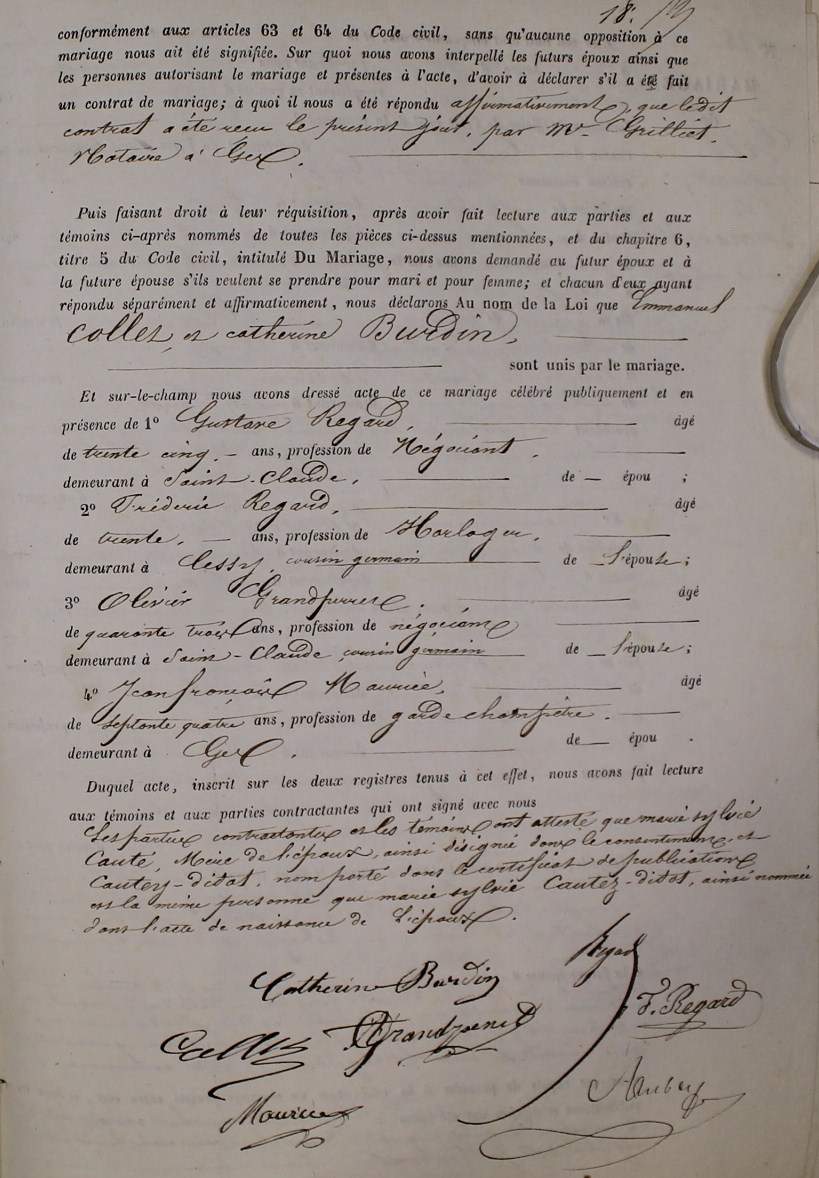 18.
conformément aux articles 63 et 64 du Code civil, sans qu'aucune opposition à ce
mariage nous ait été signifiée. Sur quoi nous avons interpellé les futurs époux ainsi que
les personnes autorisant le mariage et présentes à l'acte, d'avoir à déclarer s'il a été fait
un contrat de mariage; à quoi il nous a été répondu affirmativement, que ledit
contrat a été reçu le présent jour, par Mr Grilliet,
Notaire à Gex.
Puis faisant droit à leur réquisition, après avoir fait lecture aux parties et aux
témoins ci-après nommés de toutes les pièces ci-dessus mentionnées, et du chapitre 6,
titre 5 du Code civil, intitulé Du Mariage, nous avons demandé au futur époux et à
la future épouse s'ils veulent se prendre pour mari et pour femme; et chacun d'eux ayant
répondu séparément et affirmativement, nous déclarons Au nom de la Loi que Emmanuel
Collet, et Catherine Burdin,
sont unis par le mariage.
Et sur-le-champ nous avons dressé acte de ce mariage célébré publiquement et en
présence de 1º Gustave Regard, âgé
de trente cinq – ans, profession de Négociant,
demeurant à Saint-Claude, de — épou ;
2º Fréderic Regard, âgé
de trente, — ans, profession de Horloger,
demeurant à Cessy, cousin germain de l'épouse;
3º Olivier Grandperret, âgé
de quarante trois ans, profession de négociant
demeurant à Saint-Claude cousin germain de l'épouse;
4º Jean françois Maurice, âgé
de septante quatre ans, profession de garde champêtre.
demeurant à Gex. de — épou .
Duquel acte, inscrit sur les deux registres tenus à cet effet, nous avons fait lecture
aux témoins et aux parties contractantes qui ont signé avec nous
Les parties contractantes et les témoins ont attesté que marie sylvie
Cauté, Mère de l'époux, ainsi désignée dans le consentement, et
Cautey-didot, nom porté dans le certificat de publications
est la même personne que marie sylvie Cautez-didot, ainsi nommée
dans l'acte de naissance de l'époux.
Regard
Catherine Burdin
F. Regard
Collet
Grandperret
Maurice